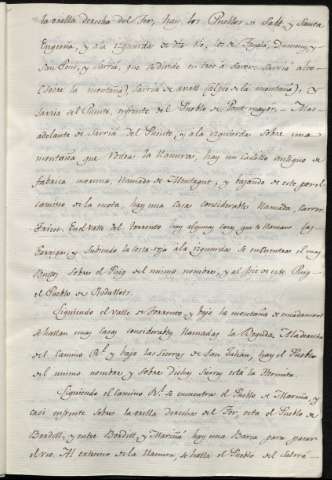 la orilla derecha del Ter, hay los Pueblos de Salt, y Santa
Eugenia, y a la izquierda de dho Rio, los de Taiala, Domeny, y
San Pons, y Sarriá, que se divide en tres a saver: Sarriá alto
(sobre la montaña) Sarriá de avall (al pie de la montaña), y
Sarriá del Puente, enfrente del Pueblo de Pont mayor. Mas
adelante de Sarriá del Puente, y a la izquierda sobre una
montaña, que rodea la llanura, hay un Castillo antiguo de
fabrica moruna, llamado de Montagut, y bajando de este por el
camino de la cuesta, hay una casa considerable llamada
En el valle del torrente hay algunas casas que se llaman las
y subiendo la cuesta roja a la izquierda se encuentran el
sobre el Puig del mismo nombre, y al pie de este Puig
el Pueblo de Medallots.
Siguiendo el valle de torrente y bajo la montaña de
se hallan muy casas considerables llamadas la Rapida. A la derecha
del camino Rl. y bajo las sierras de San Julian, hay el Pueblo
del mismo nombre y sobre dichas sierras está la Hermita.
Siguiendo el camino Rl. se encuentra el Pueblo de Mariña, y
casi enfrente sobre la orilla derecha del Ter, está el Pueblo de
Bordill, y entre Bordill, y Mariñá hay una Barca para pasar
el rio. Al extremo de la llanura, se halla el Pueblo del